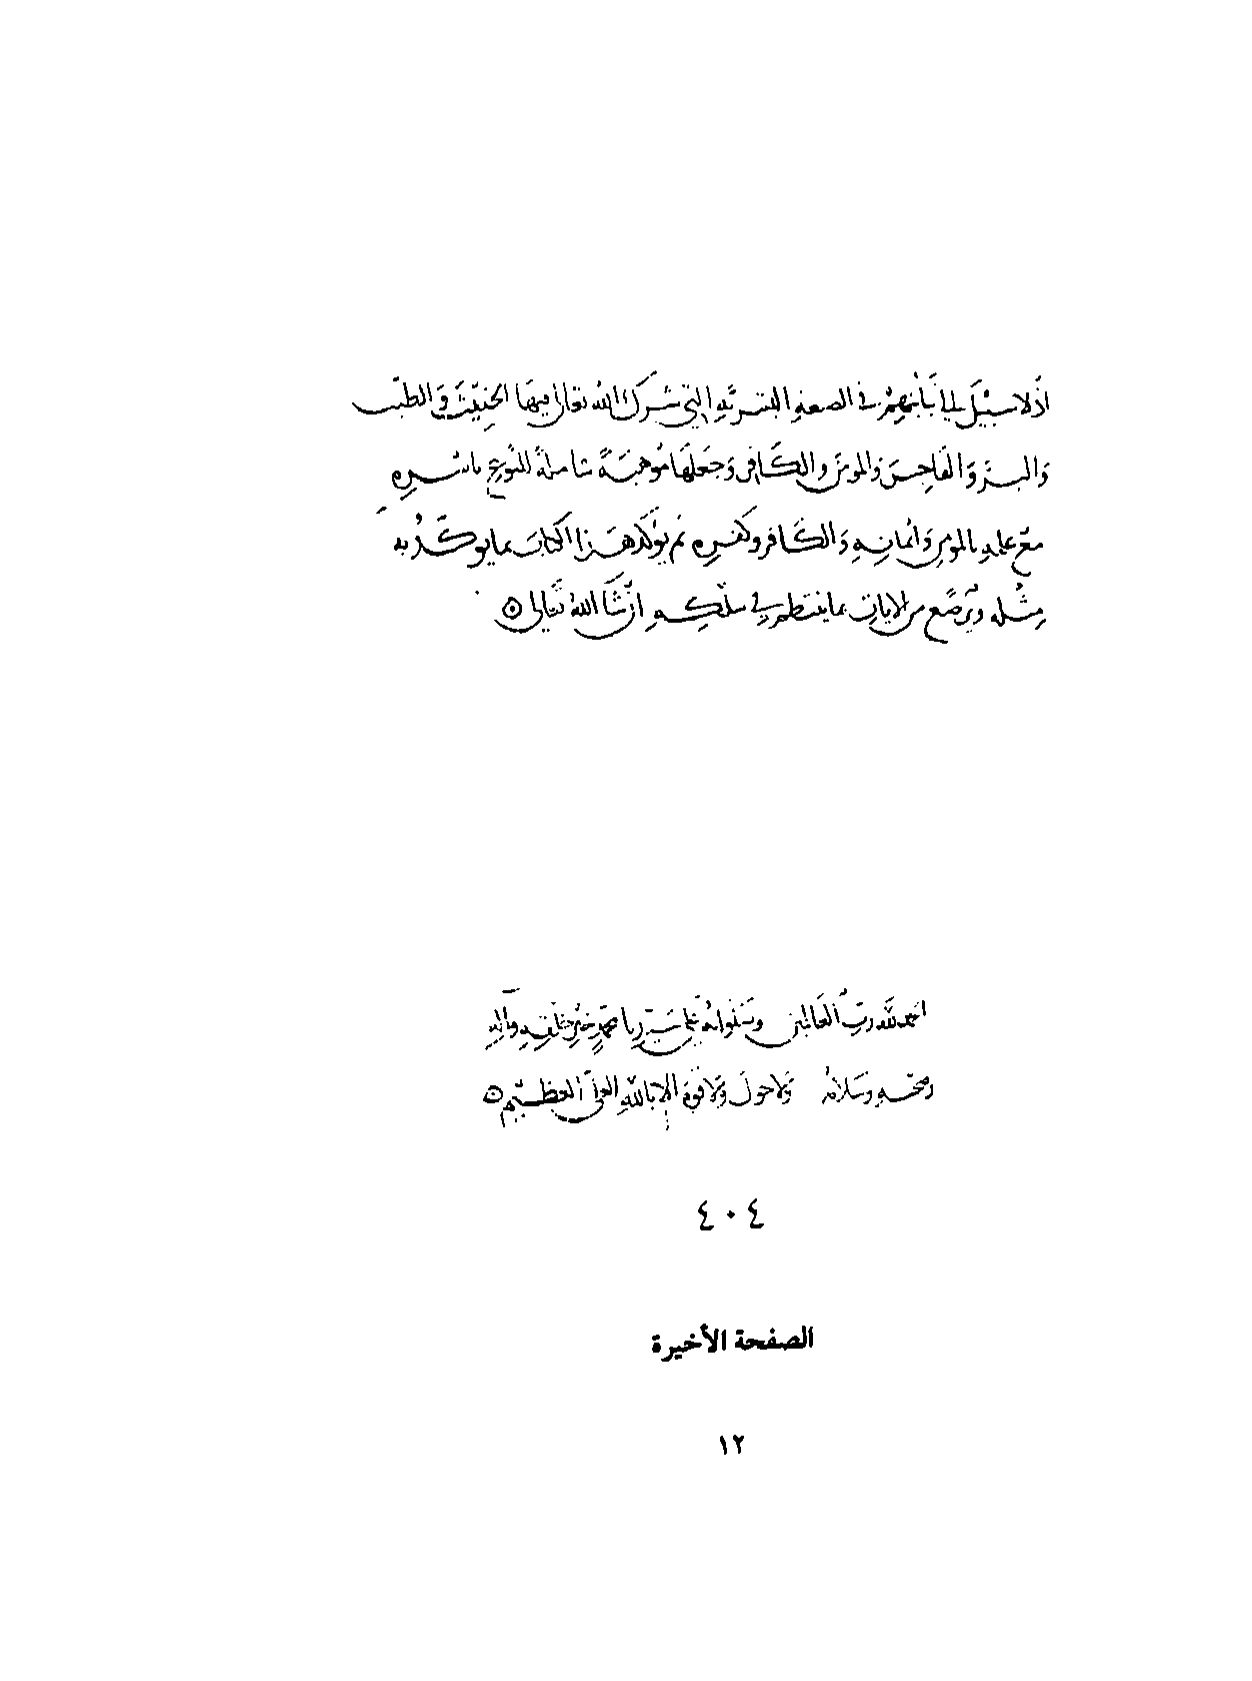 اذ لا سبيل الى في الصفه البشريه التي شرك الله تعالى فيها الخبيث والطيب
والبر والفاجر والمومن والكافر وجعلها موهبة شاملة للنوع باسره
مع علمه بالمومن وايمانه والكافر وكفره ثم يؤكد هذا الكتاب بما يوكد به
مثله ويرصع من الايات بما ينتظم في سلكه ان شا الله تعالى
الحمد لله رب العالمين وصلواته على سيدنا محمد خير خلقه وآله
وصحبه وسلامه ولا حول ولا قوة الا بالله العلي العظيم
٤٠٤
الصفحة الأخيرة
١٢